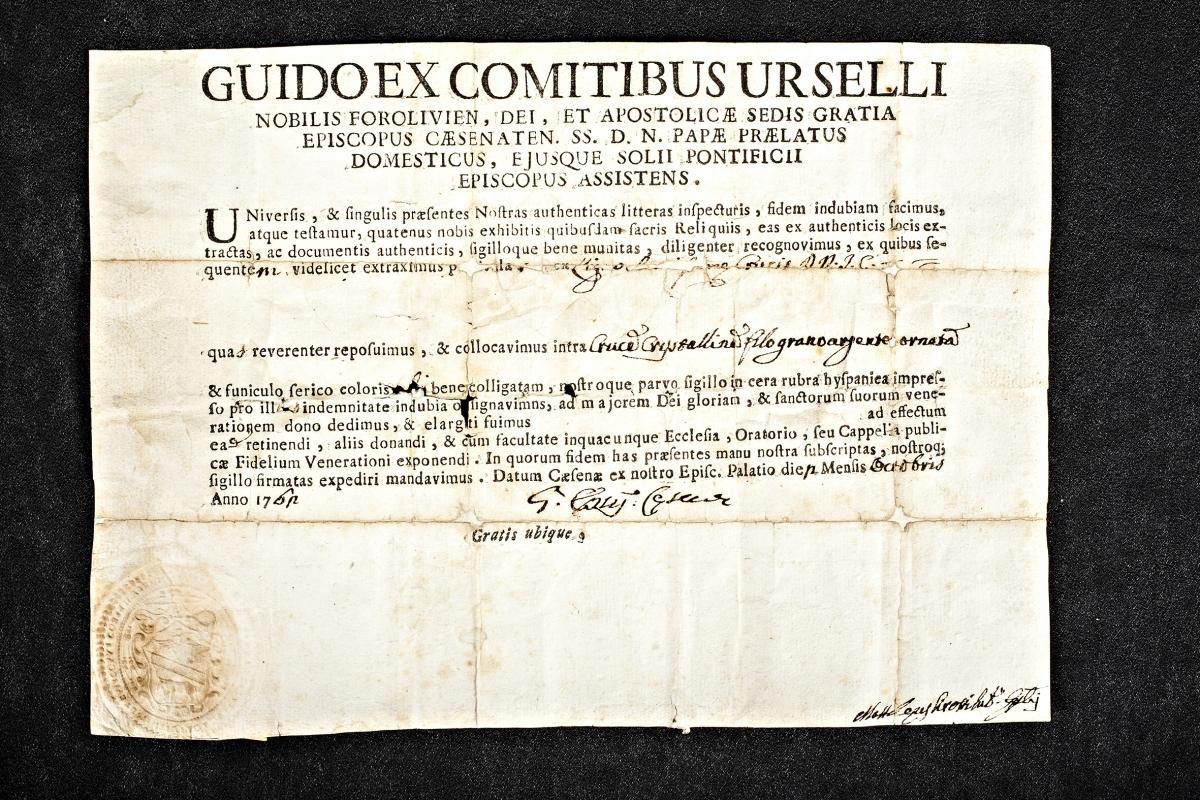 GUIDO EX COMITIBUS URSELLI
NOBILIS FOROLIVIEN, DEI, ET APOSTOLICÆ SEDIS GRATIA
EPISCOPUS CÆSENATEN. SS. D. N. PAPÆ PRÆLATUS
DOMESTICUS, EJUSQUE SOLII PONTIFICII
EPISCOPUS ASSISTENS.
UNiversis, & singulis præsentes Nostras authenticas litteras inspecturis, fidem indubiam facimus,
atque testamur, quatenus nobis exhibitis quibusdam sacris Reliquiis, eas ex authenticis locis ex-
tractas, ac documentis authenticis, sigilloque bene munitas, diligenter recognovimus, ex quibus se-
quentem videlicet extraximus Crucis D. N. J. C.
quas reverenter reposuimus, & collocavimus intra Cruce Cristallina filograno argente ornata
& funiculo serico coloris bene colligatam, nostroque parvo sigillo in cera rubra hyspanica impres-
so pro indemnitate indubia obsignavimns, ad majorem Dei gloriam, & sanctorum suorum vene-
rationem dono dedimus, & elargiti fuimus ad effectum
eas retinendi, aliis donandi, & cum facultate inquacunque Ecclesia, Oratorio, seu Cappella publi-
cæ Fidelium Venerationi exponendi. In quorum fidem has præsentes manu nostra subscriptas, nostroq;
sigillo firmatas expediri mandavimus. Datum Cæsenæ ex nostro Episc. Palatio die Mensis Octobris
Anno 176
Gratis ubique